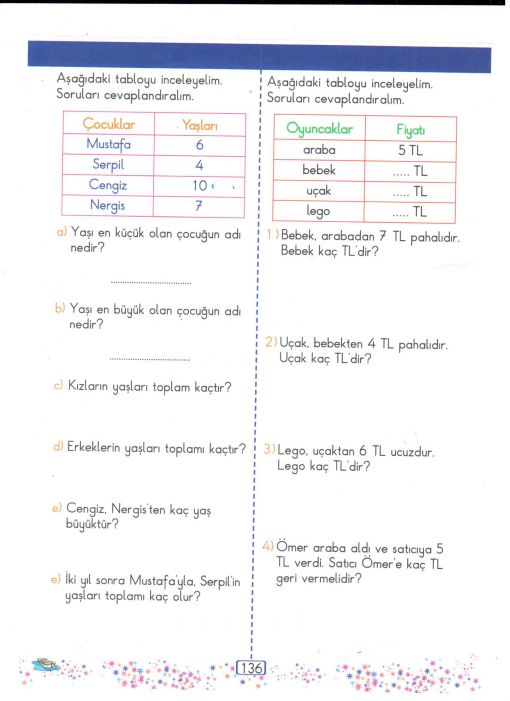 Aşağıdaki tabloyu inceleyelim.
Soruları cevaplandıralım.
Çocuklar Yaşları
Mustafa 6
Serpil 4
Cengiz 10
Nergis 7
a) Yaşı en küçük olan çocuğun adı
nedir?
................................
b) Yaşı en büyük olan çocuğun adı
nedir?
................................
c) Kızların yaşları toplam kaçtır?
d) Erkeklerin yaşları toplamı kaçtır?
e) Cengiz, Nergis'ten kaç yaş
büyüktür?
e) İki yıl sonra Mustafa'yla, Serpil'in
yaşları toplamı kaç olur?
Aşağıdaki tabloyu inceleyelim.
Soruları cevaplandıralım.
Oyuncaklar Fiyatı
araba 5 TL
bebek ..... TL
uçak ..... TL
lego ..... TL
1) Bebek, arabadan 7 TL pahalıdır.
Bebek kaç TL'dir?
2) Uçak, bebekten 4 TL pahalıdır.
Uçak kaç TL'dir?
3) Lego, uçaktan 6 TL ucuzdur.
Lego kaç TL'dir?
4) Ömer araba aldı ve satıcıya 5
TL verdi. Satıcı Ömer'e kaç TL
geri vermelidir?
136